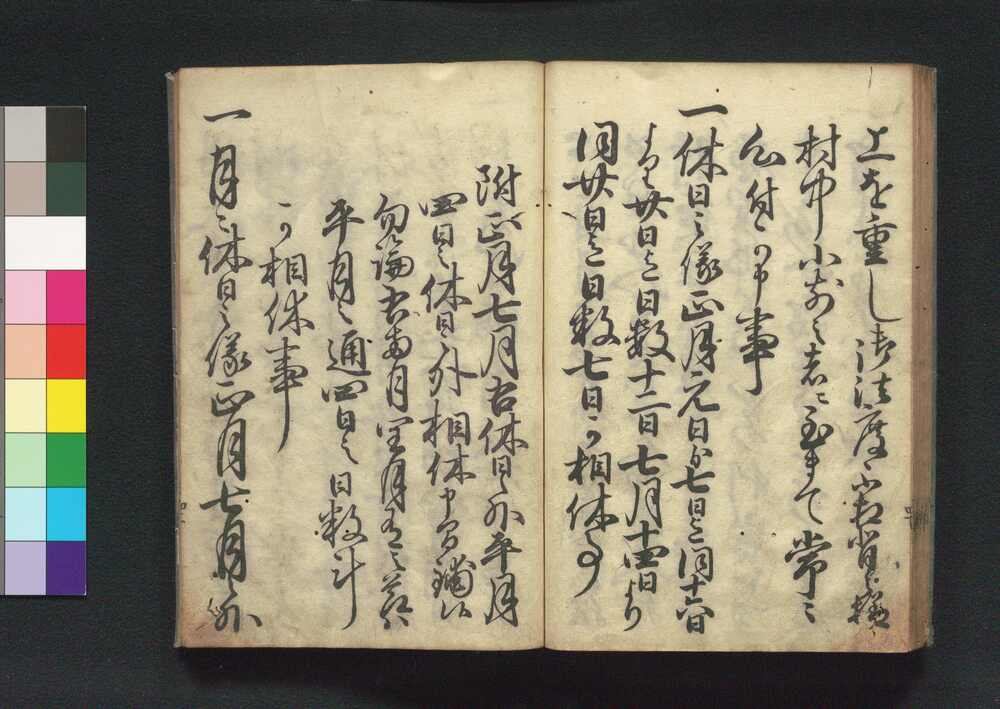 上を重し御法度不相背候様
村中小前之者ニ至まて常々
可申付事
一休日之儀正月元日ゟ七日迄同十六日
より廿日迄日数十二日七月十四日より
同廿日迄日数七日可相休事
附正月七月右休日之外平月
四日之休日之外相休申間鋪候
勿論右両月閏月有之節ハ
平月之通四日之日数計
可相休事
一月之休日之儀正月七月之外